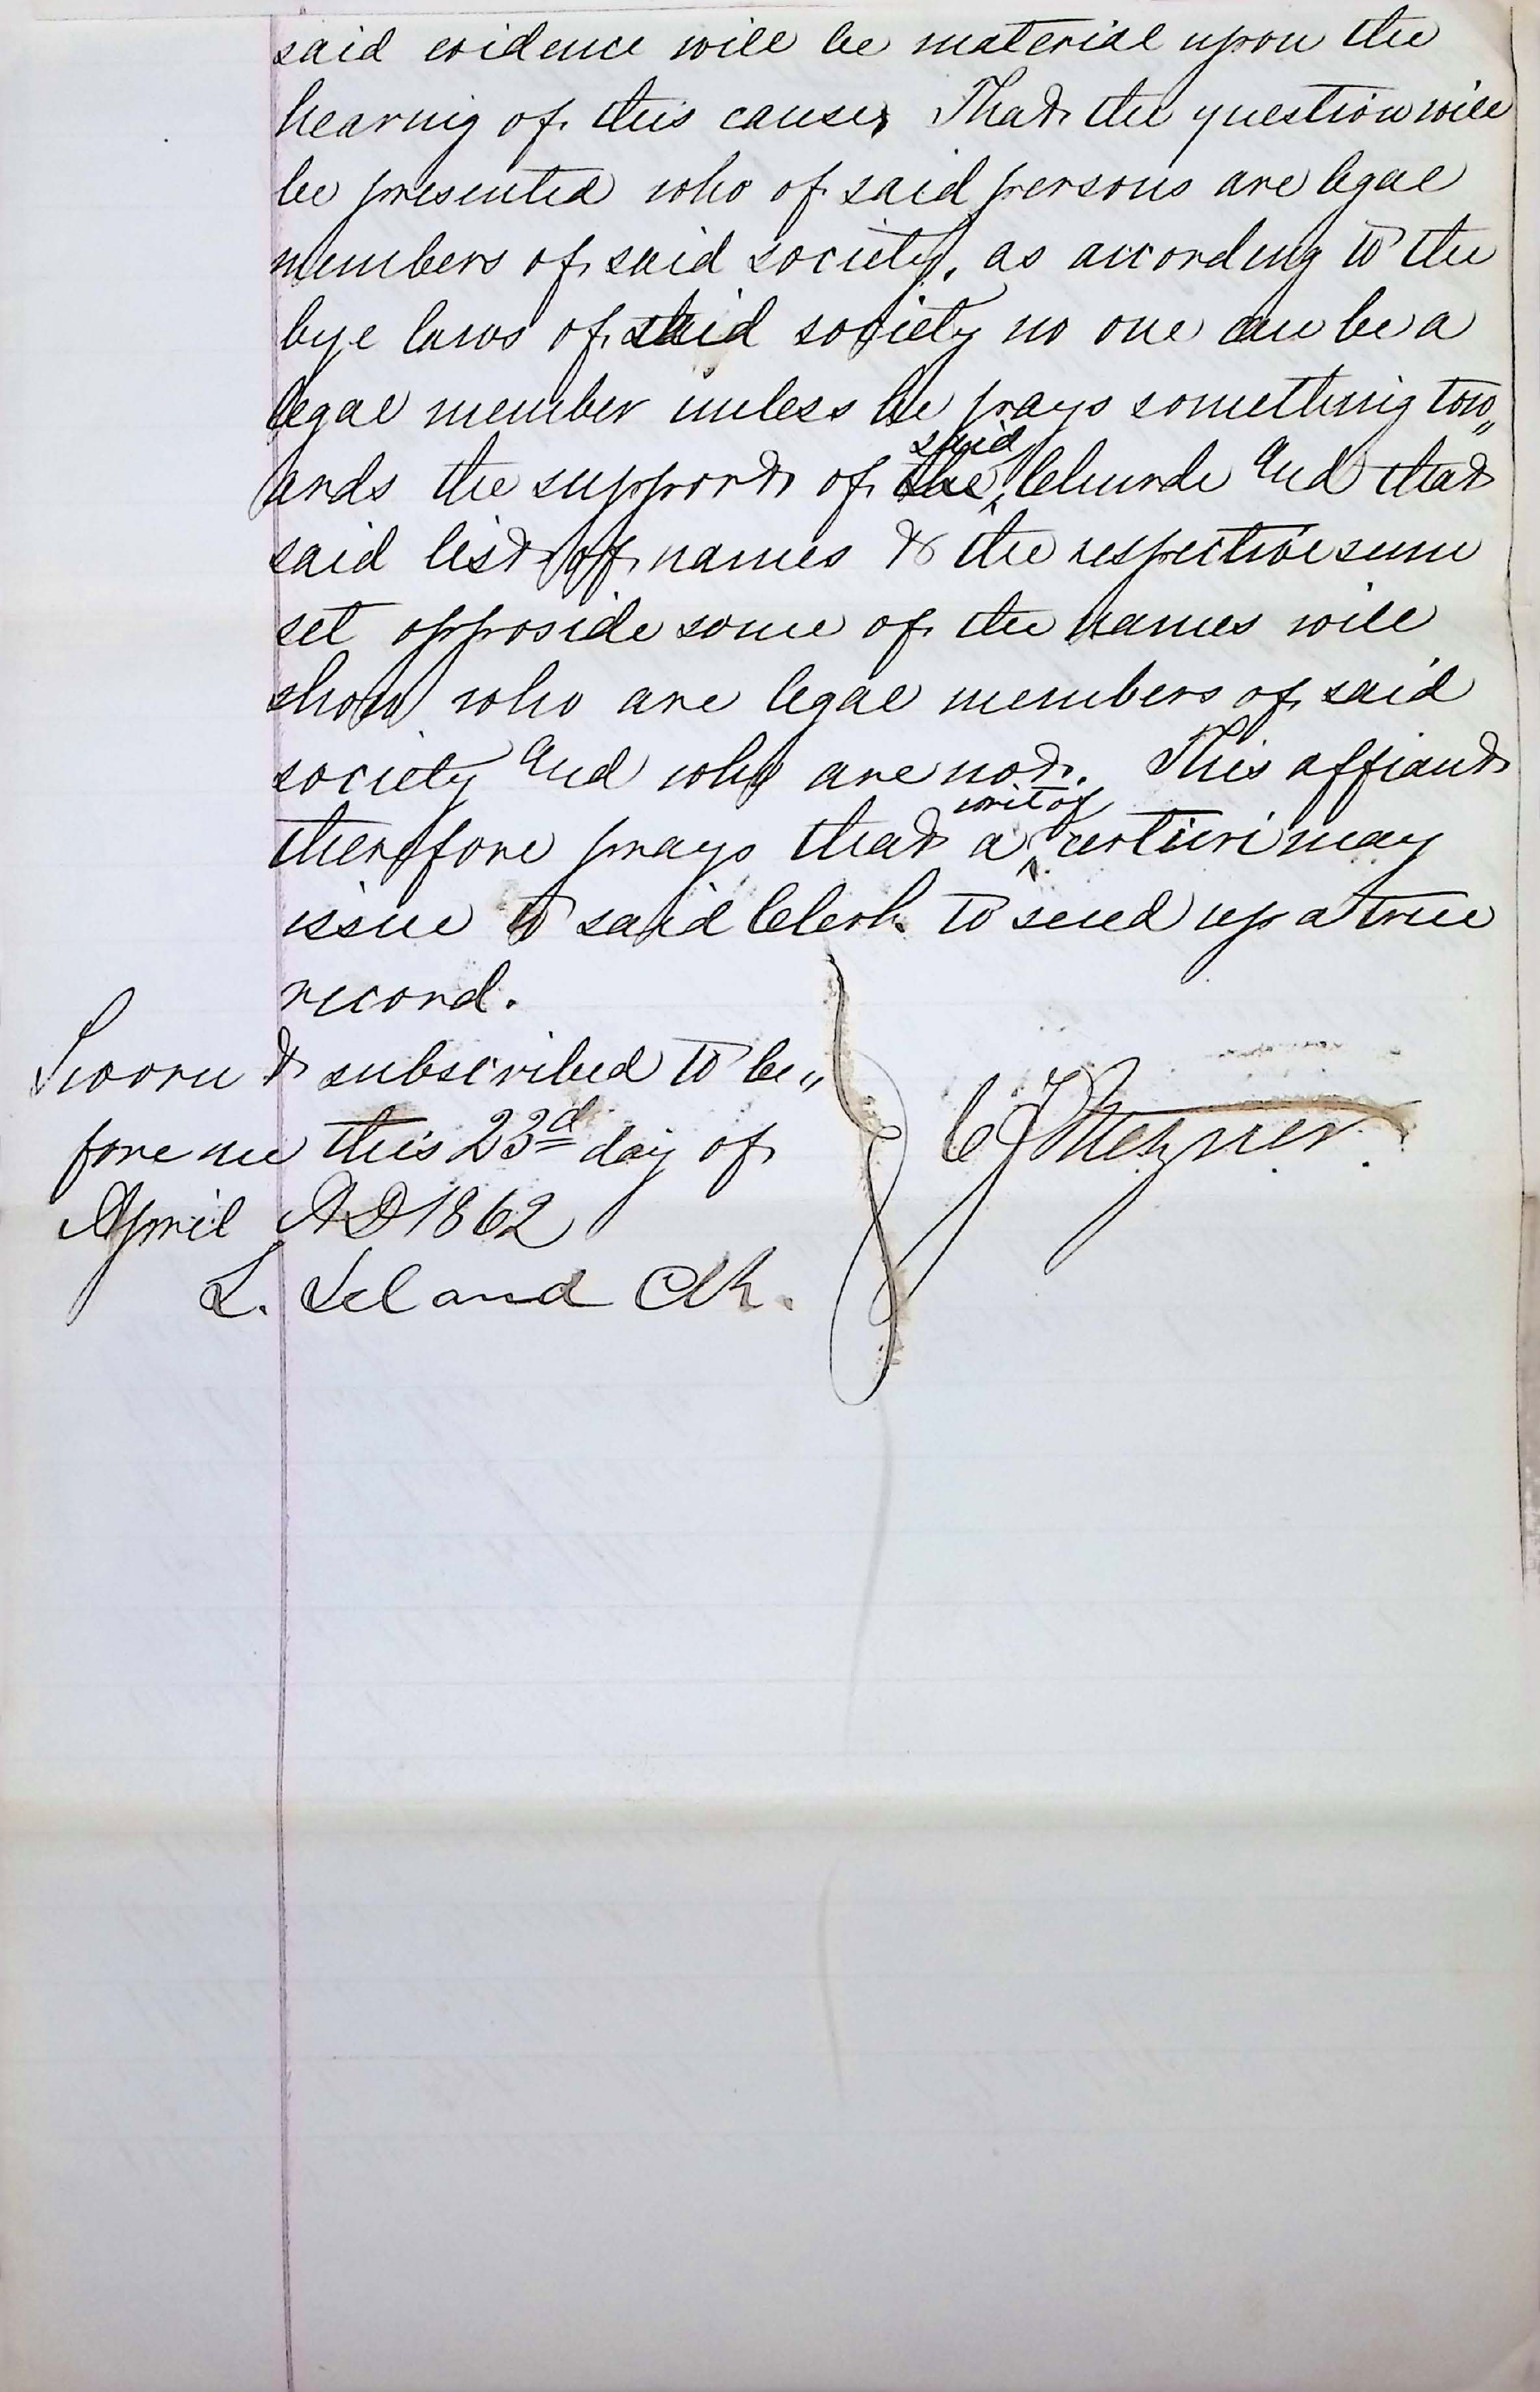 said evidence will be material upon the
hearing of this cause, That the question will
be presented who of said persons are legal
members of said society, as according to the
bye laws of said society no one can be a
legal member unless he pays something tow„
ards the support of the said Church And that
said list of names & the respective sum
set opposide some of the names will
show who are legal members of said
society And who are not. This affiant
therefore prays that a writ of certiuri may
issue to said Clerk to send up a true
record.
Sworn & subscribed to be„
fore me this 23d day of
April AD 1862
L. Leland Clk.